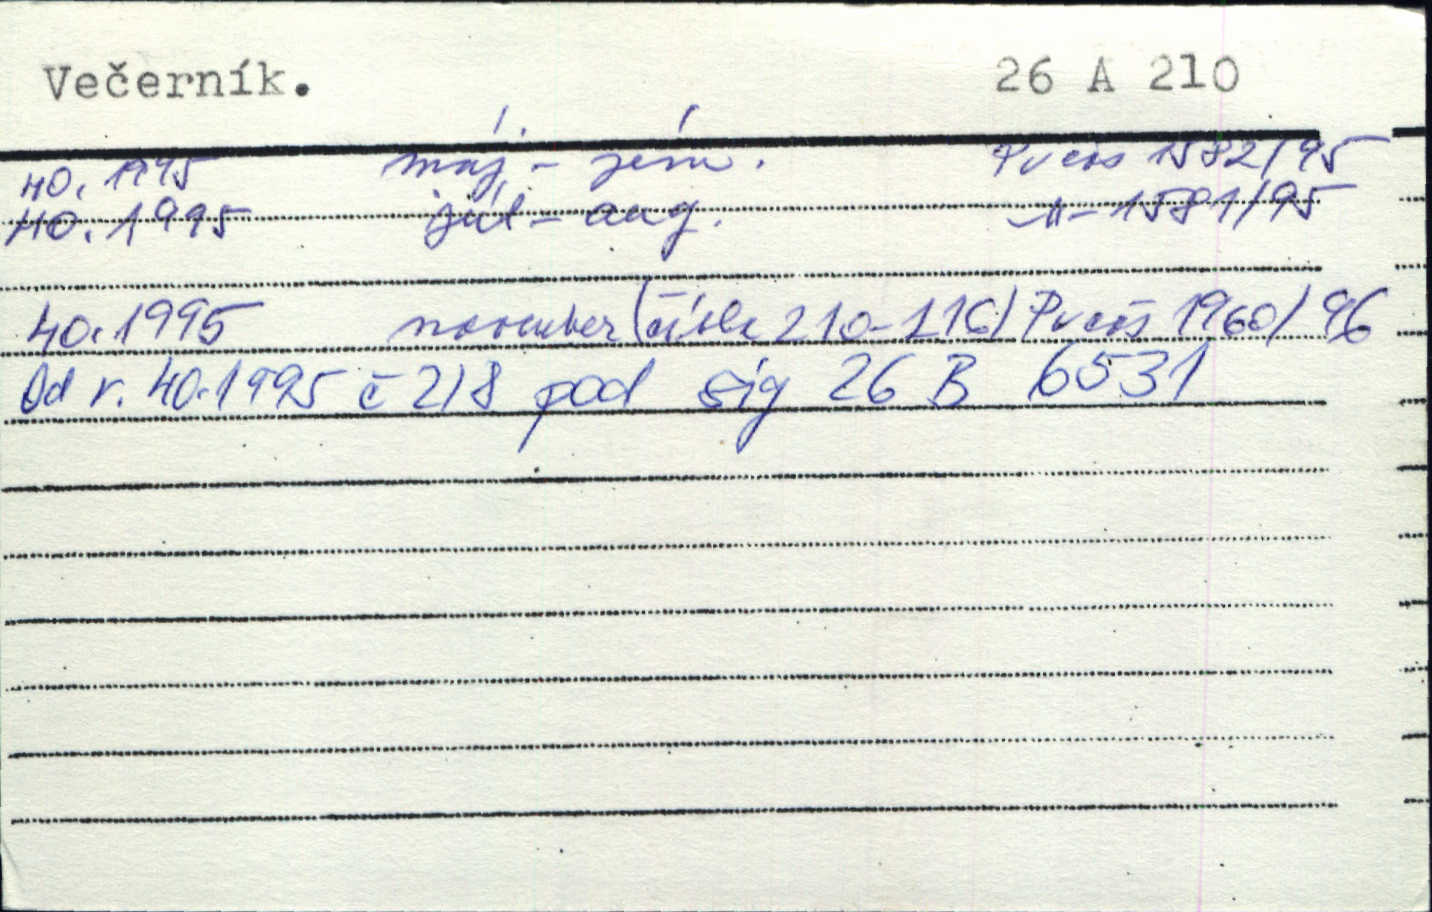 Večerník. 26 A 210
40. 1995 máj - jún.
40. 1995 júl - aug. -"- 1581/95
40. 1995 november (čísla 210-216) 1960/96
Od r. 40.1995 č 218 pod sig 26 B 6531